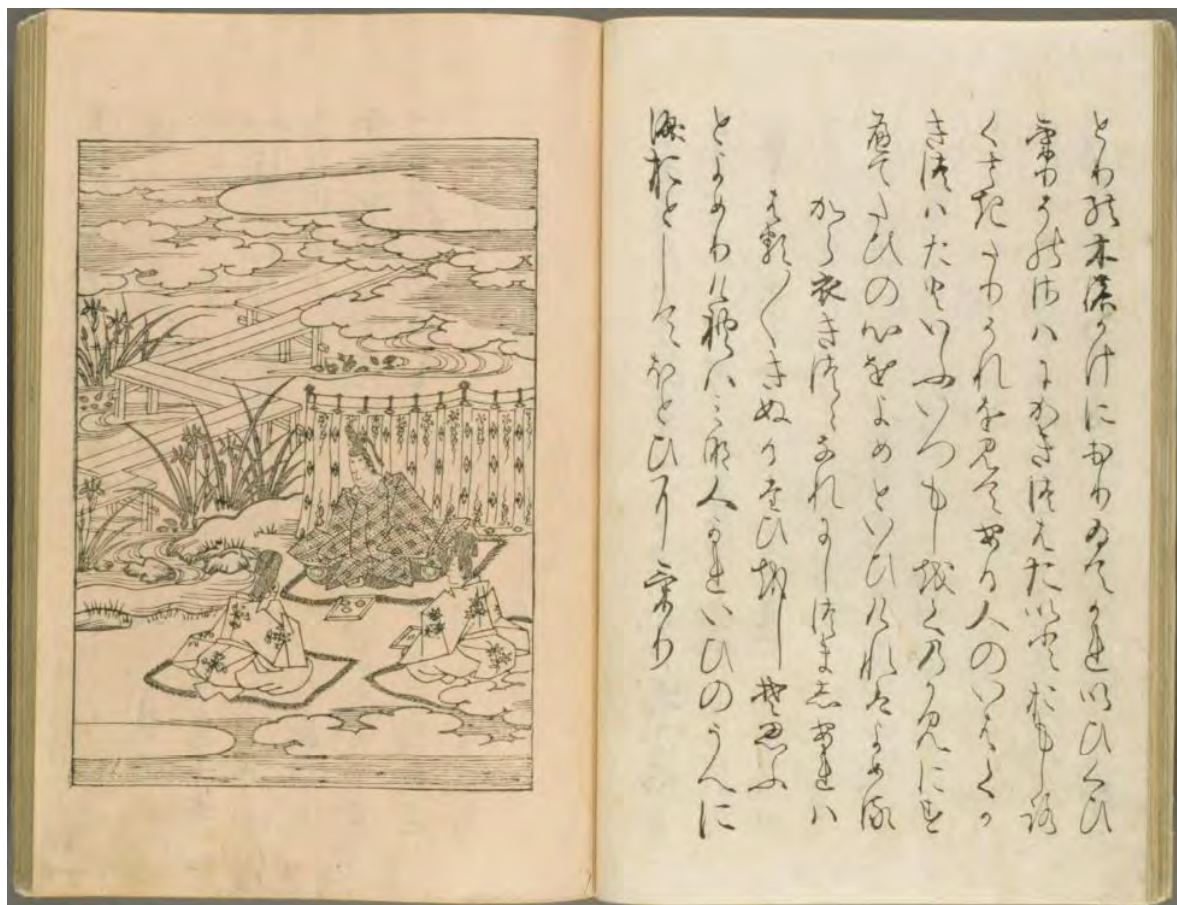 とりの木のかけにおりゐてかれいひくひ
けりそのさはにかきつはたいとおもしろ
くさきたりそれを見てある人のいはくか
きつはたといふいつもしをくのかみにす
へてたひの心をよめといひけれはよめる
から衣きつゝなれにしつましあれは
はる／＼きぬるたひをしそ思ふ
とよめりけれはみな人かれいひのうへに
涙おとしてほとひにけり